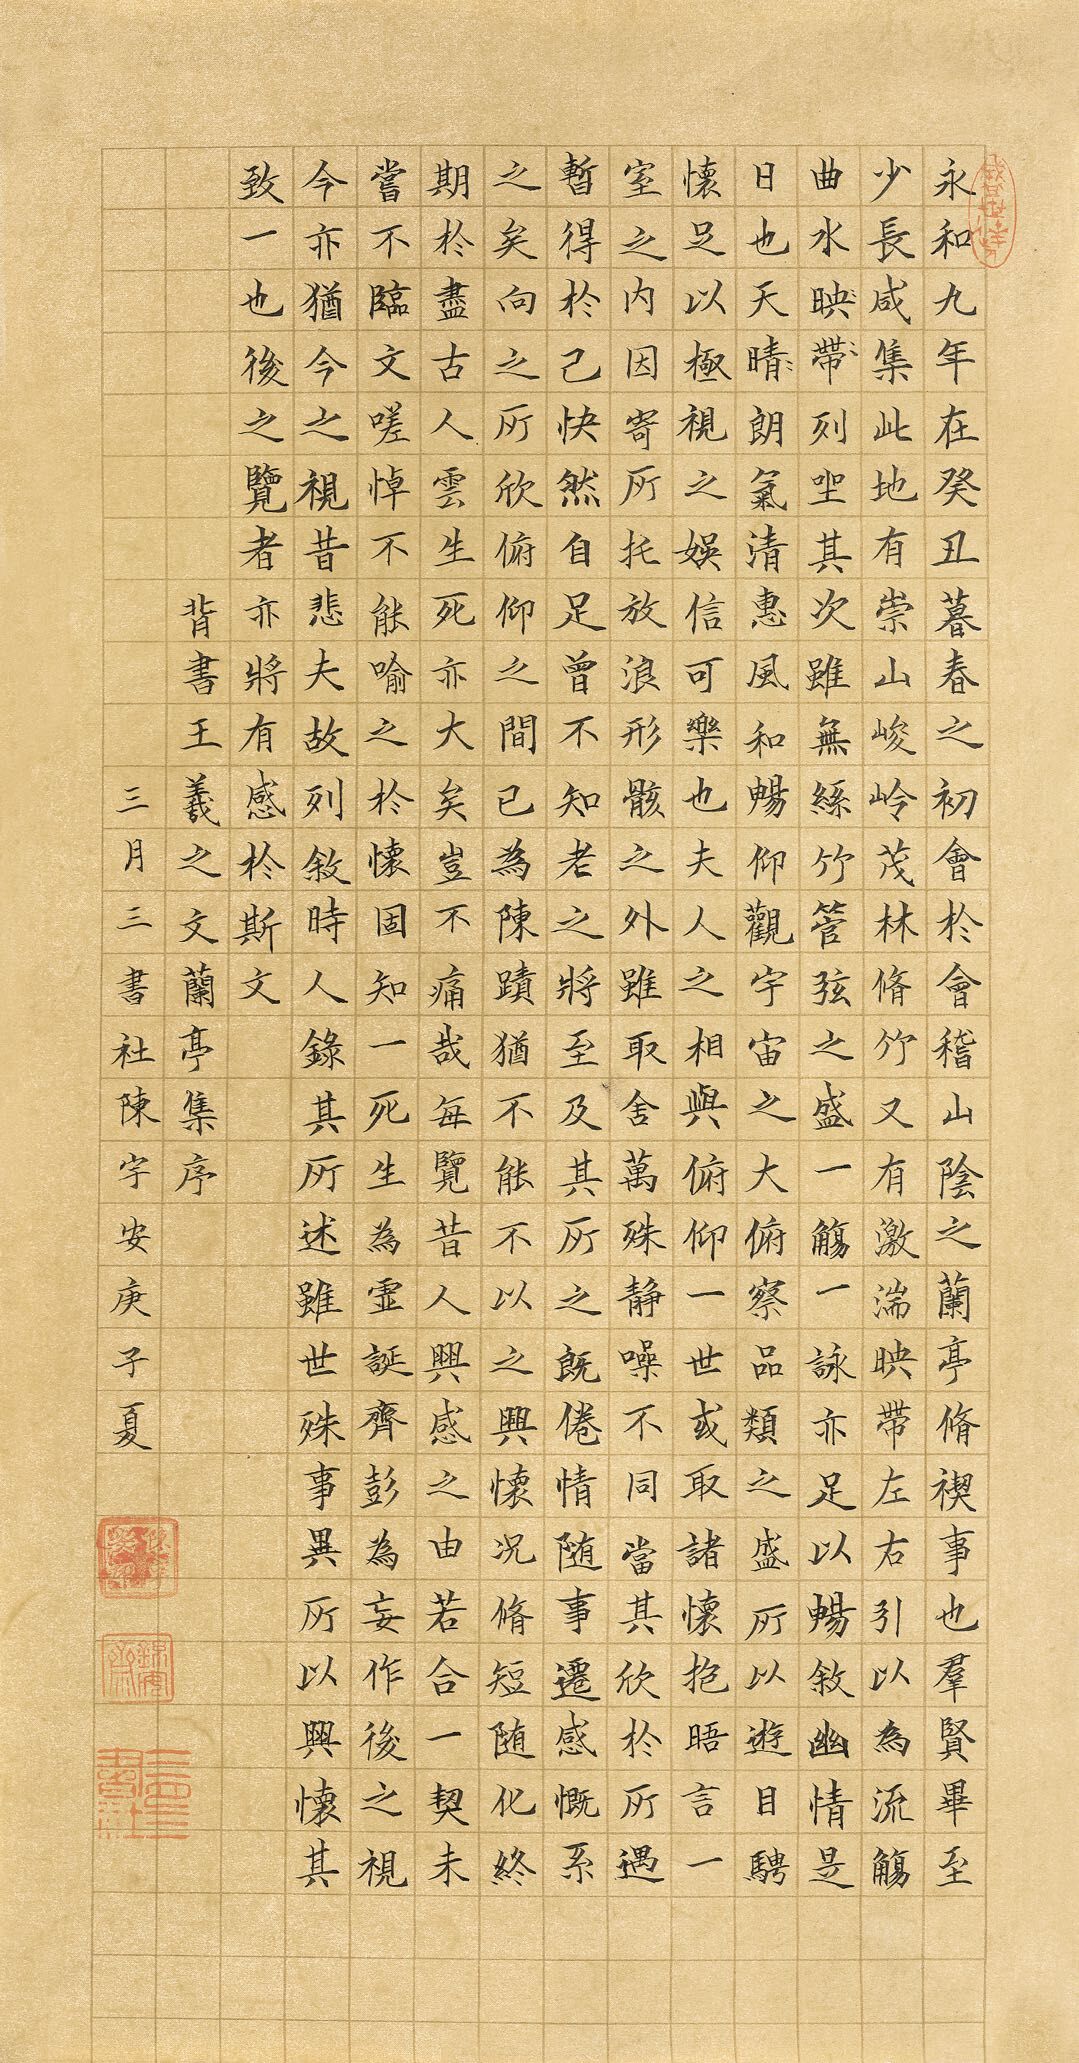 永和九年在癸丑暮春之初會於會稽山陰之蘭亭脩禊事也羣賢畢至
少長咸集此地有崇山峻岭茂林脩竹又有激湍映帶左右引以為流觴
曲水映帶列坐其次雖無絲竹管弦之盛一觴一詠亦足以暢敘幽情是
日也天晴朗氣清惠風和暢仰觀宇宙之大俯察品類之盛所以遊目騁
懷足以極視之娛信可樂也夫人之相與俯仰一世或取諸懷抱晤言一
室之内因寄所托放浪形骸之外雖取舍萬殊静噪不同當其欣於所遇
暫得於己快然自足曾不知老之將至及其所之既倦情随事遷感慨系
之矣向之所欣俯仰之間已為陳蹟猶不能不以之興懷况脩短随化終
期於盡古人雲生死亦大矣豈不痛哉每覽昔人興感之由若合一契未
嘗不臨文嗟悼不能喻之於懷固知一死生為虛誕齊彭為妄作後之視
今亦猶今之視昔悲夫故列敘時人錄其所述雖世殊事異所以興懷其
致一也後之覽者亦將有感於斯文
背書王羲之文蘭亭集序
三月三書社陳宇安庚子夏